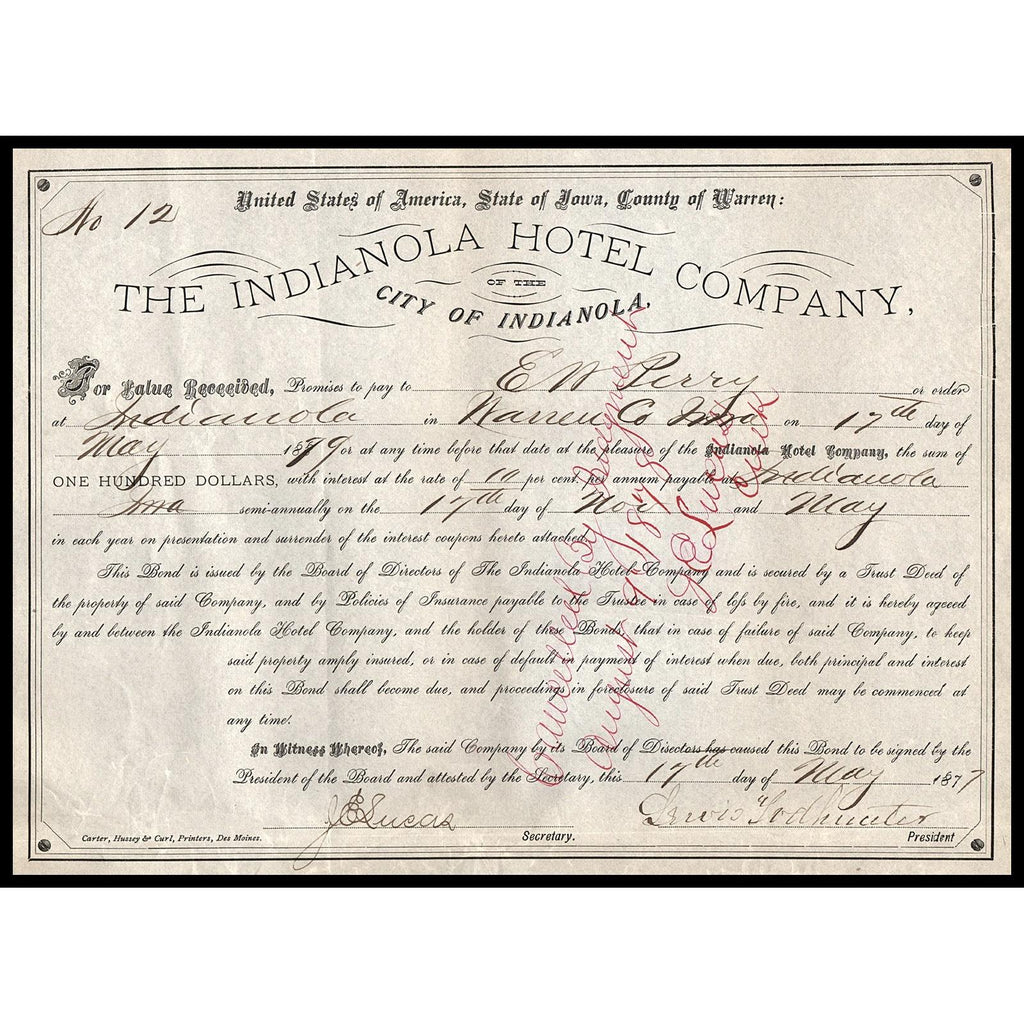 No 12
United States of America, State of Iowa, County of Warren:
THE INDIANOLA HOTEL COMPANY,
OF THE
CITY OF INDIANOLA,
For Value Received, Promises to pay to E W Perry or order
at Indianola in Warren Co Iowa on 17th day of
May 1879 or at any time before that date at the pleasure of the Indianola Hotel Company, the sum of
ONE HUNDRED DOLLARS, with interest at the rate of 10 per cent. per annum payable at Indianola
Iowa semi-annually on the 17th day of Nov and May
in each year on presentation and surrender of the interest coupons hereto attached.
This Bond is issued by the Board of Directors of The Indianola Hotel Company and is secured by a Trust Deed of
the property of said Company, and by Policies of Insurance payable to the Trustee in case of loss by fire, and it is hereby agreed
by and between the Indianola Hotel Company, and the holder of these Bonds, that in case of failure of said Company, to keep
said property amply insured, or in case of default in payment of interest when due, both principal and interest
on this Bond shall become due, and proceedings in foreclosure of said Trust Deed may be commenced at
any time.
In Witness Whereof, The said Company by its Board of Disectors has caused this Bond to be signed by the
President of the Board and attested by the Secretary, this 17th day of May 1877
J E Lucas Lewis Todhunter
Carter, Hussey & Curl, Printers, Des Moines. Secretary. President
Cancelled by Judgment
August 9th 1878
J E Lucas